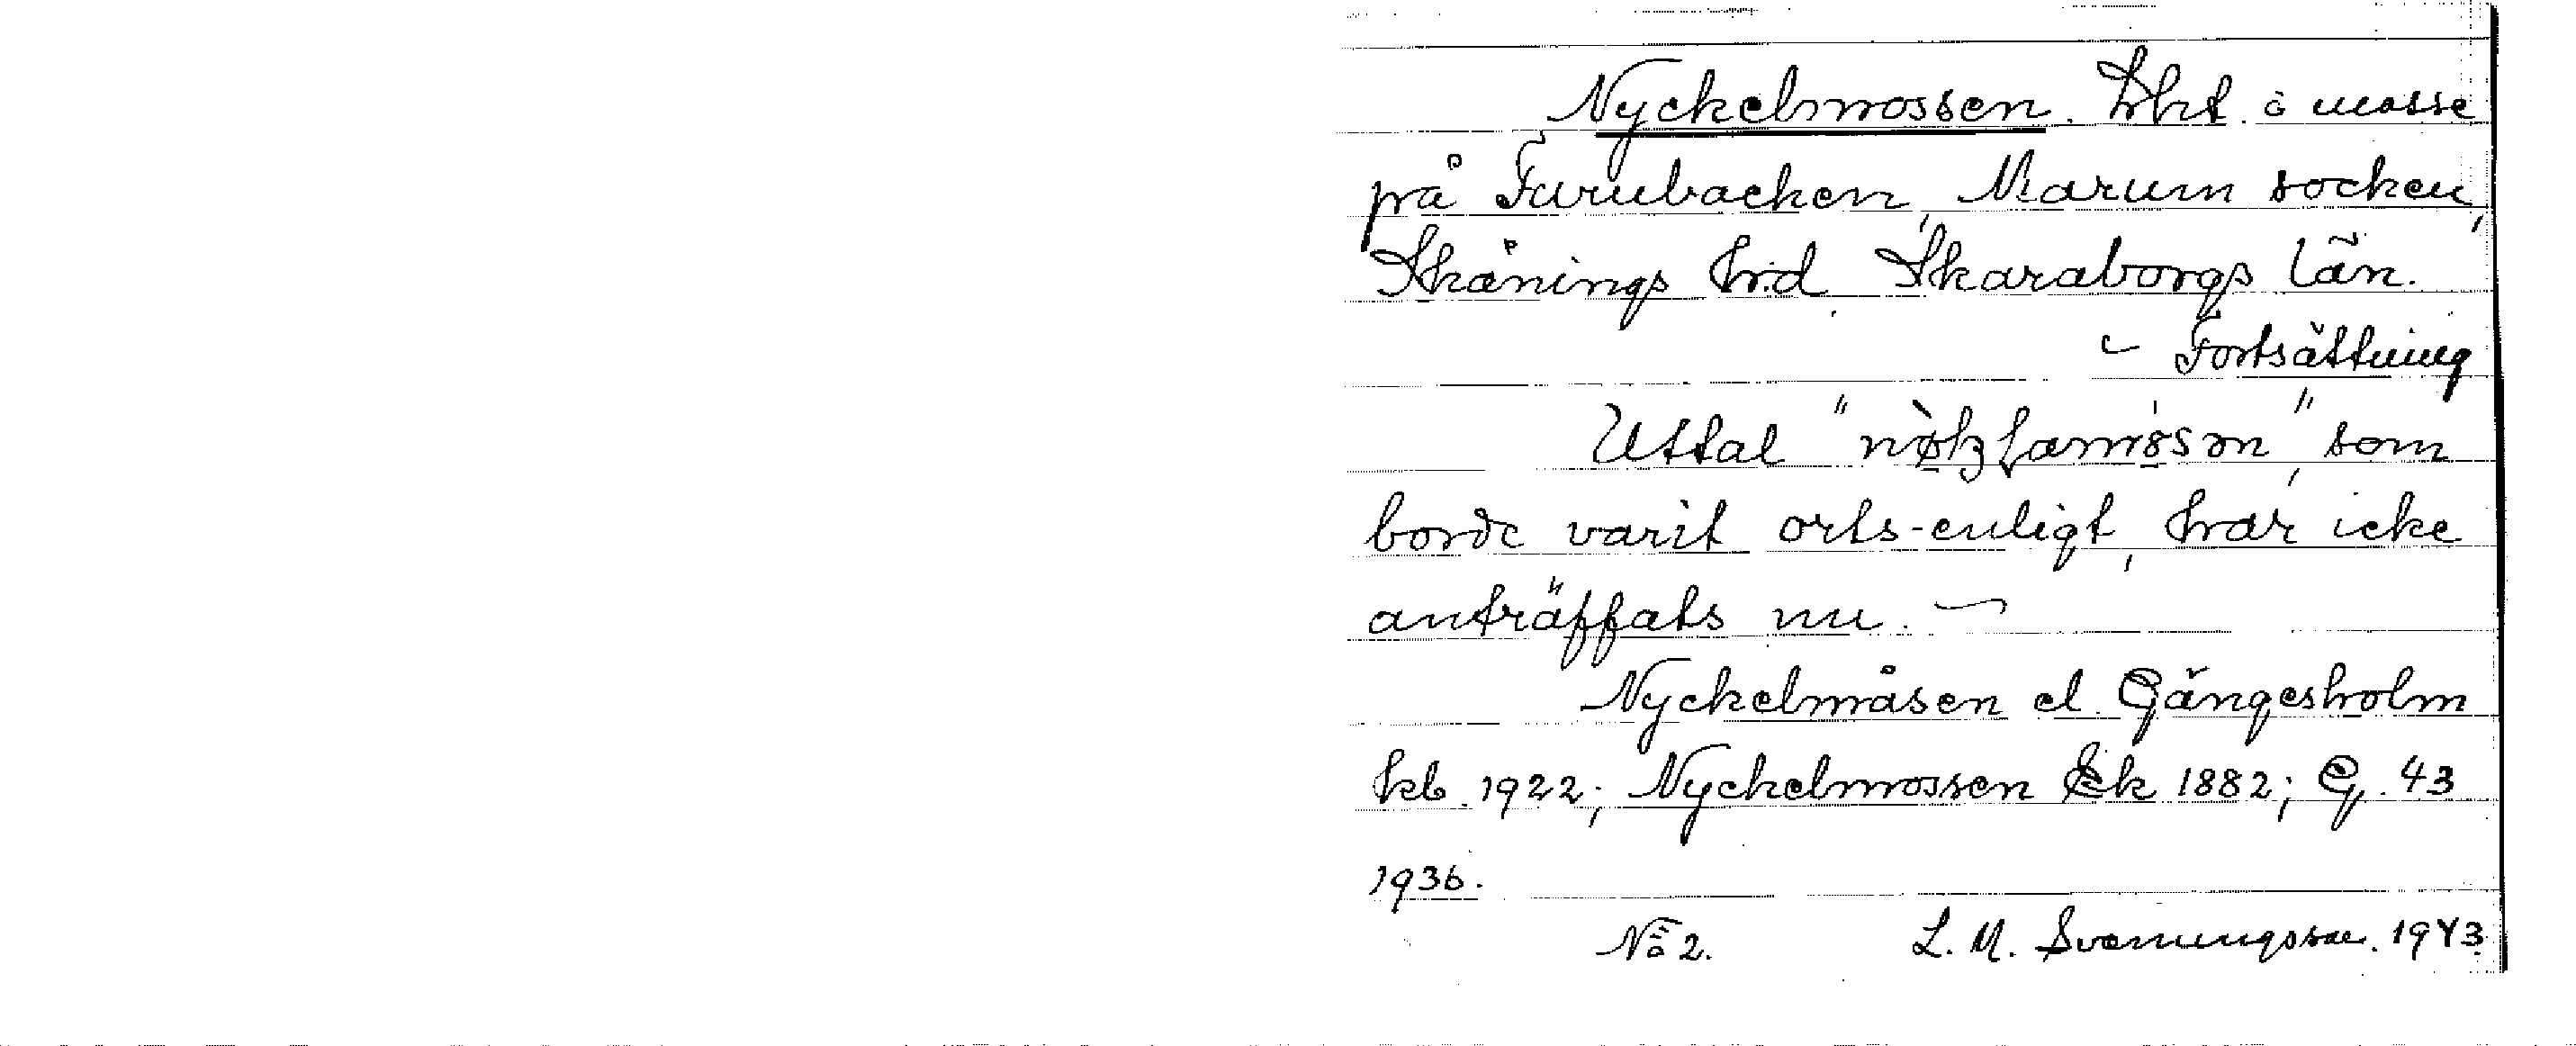 Nyckelmossen. Trkt. o mosse
på Furubacken, Marum socken,
Skånings hrd, Skaraborgs län.
Fortsättning
Uttal " som
borde varit orts-enligt, har icke
anträffats nu.
Nyckelmåsen el. Gängesholm
kb. 1922; Nyckelmossen Ek 1882; G. 43
1936.
No 2. L. M. Svenungsson. 1943